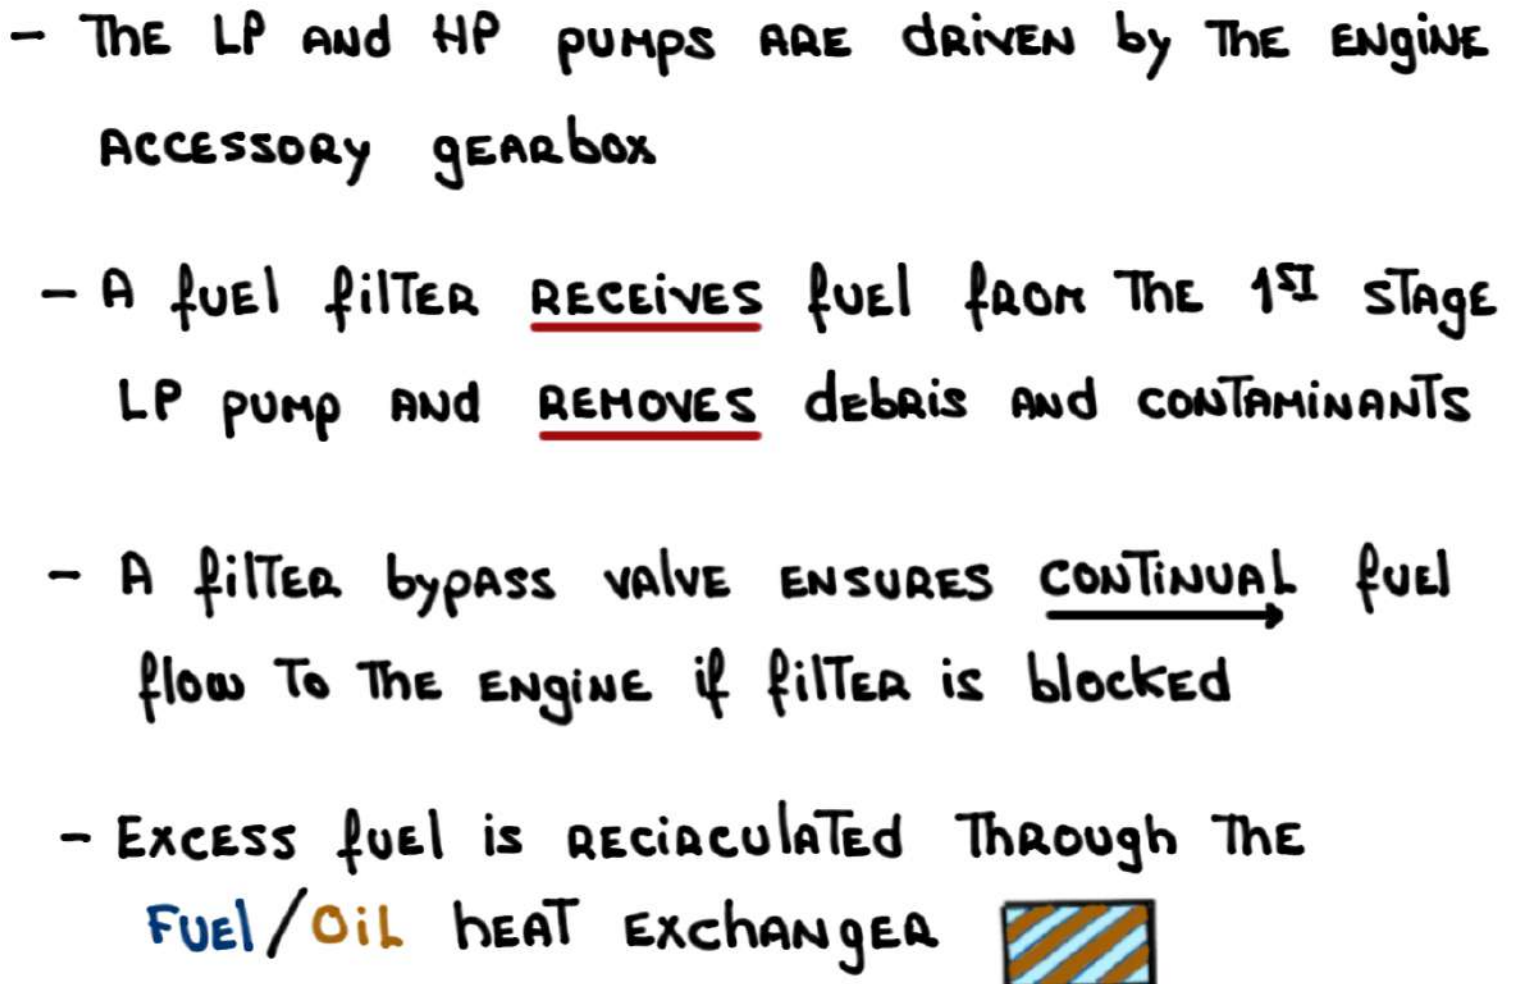 - The LP and HP pumps are driven by the engine
accessory gearbox
- A fuel filter receives fuel from the 1st stage
LP pump and removes debris and contaminants
- A filter bypass valve ensures continual fuel
flow to the engine if filter is blocked
- Excess fuel is recirculated through the
Fuel/Oil heat exchanger